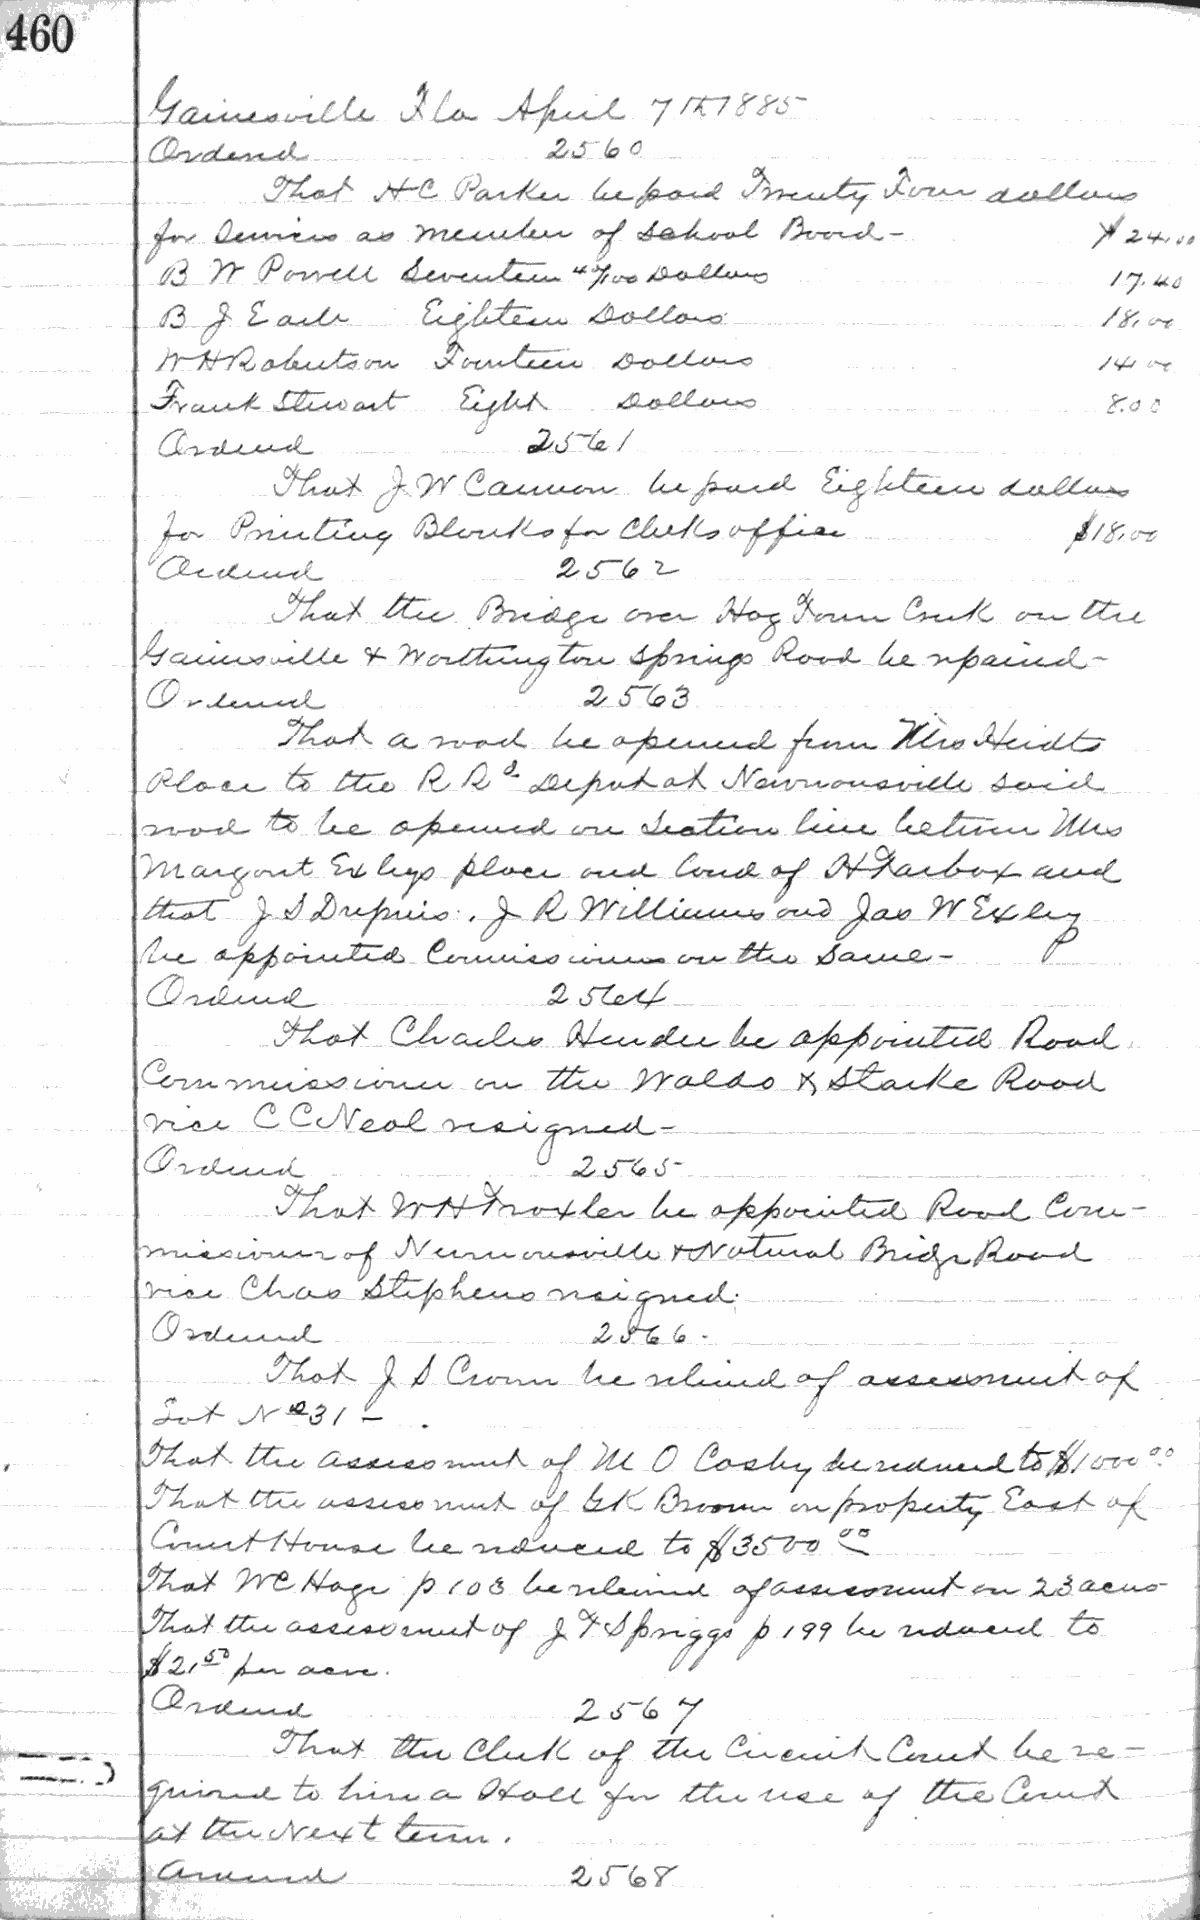 460
Gainesville Fla April 7th 1885
Ordered 2560
That H C Parker be paid Twenty Four dollars
for Services as member of School Board - $24.00
B W Powell Seventeen 40/100 Dollars 17.40
B J Earle Eighteen Dollars 18.00
W H Robertson Fourteen Dollars 14.00
Frank Stewart Eight Dollars 8.00
Ordered 2561
That J W Cannon be paid Eighteen dollars
for Printing Blanks for Clerks office $18.00
Ordered 2562
That the Bridge over Hog Town Creek on the
Gainesville & Worthington Springs Road be repaired -
Ordered 2563
That a road be opened from Mrs Heidts
Place to the R Rs Depot at Newnansville said
road to be opened on Section line between Mrs
Margaret Exleys place and land of H Tarbox and
that J S Dupuis, J R Williams and Jas W Exley
be appointed Commissioners on the Same -
Ordered 2564
That Charles Hender be appointed Road
Commissioner on the Waldo & Starke Road
vice C C Neal resigned -
Ordered 2565
That W H Troxler be appointed Road Com-
missioner of Newnansville & Natural Bridge Road
vice Chas Stephens resigned.
Ordered 2566.
That J S Crown be relieved of assessment of
Lot No 31 -
That the assessment of M O Cosby be reduced to $1000.00
That the assessment of G K Broome on property East of
Court House be reduced to $3500 00
That W C Hage p 103 be relieved of assessment on 23 acres
That the assessment of J F Spriggs p 199 be reduced to
$2.50 per acre.
Ordered 2567
That the Clerk of the Circuit Court be re-
quired to hire a Hall for the use of the Court
at the Next term.
Ordered 2568